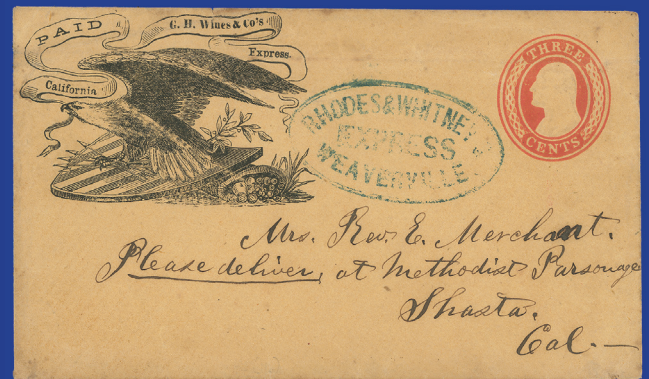 PAID
G. H. Wines & Co's
Express.
California
RHODES & WHITNEY'S
EXPRESS
WEAVERVILLE.
THREE
CENTS
Mrs. Rev. E. Merchant.
Please deliver, at Methodist Parsonage
Shasta.
Cal.—